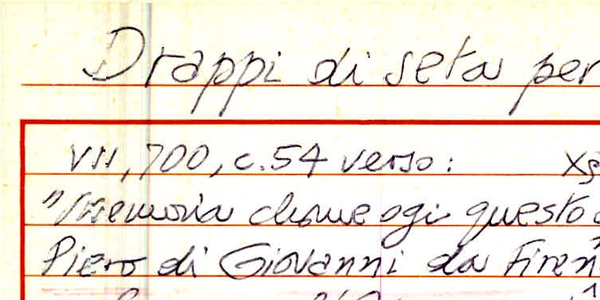 Drappi di seta per
VII, 700, c. 54 verso:
"Memoria chome ogi questo
Piero di Giovanni da Firen